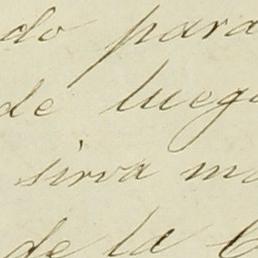 do para
de luego
sirva m
de la C